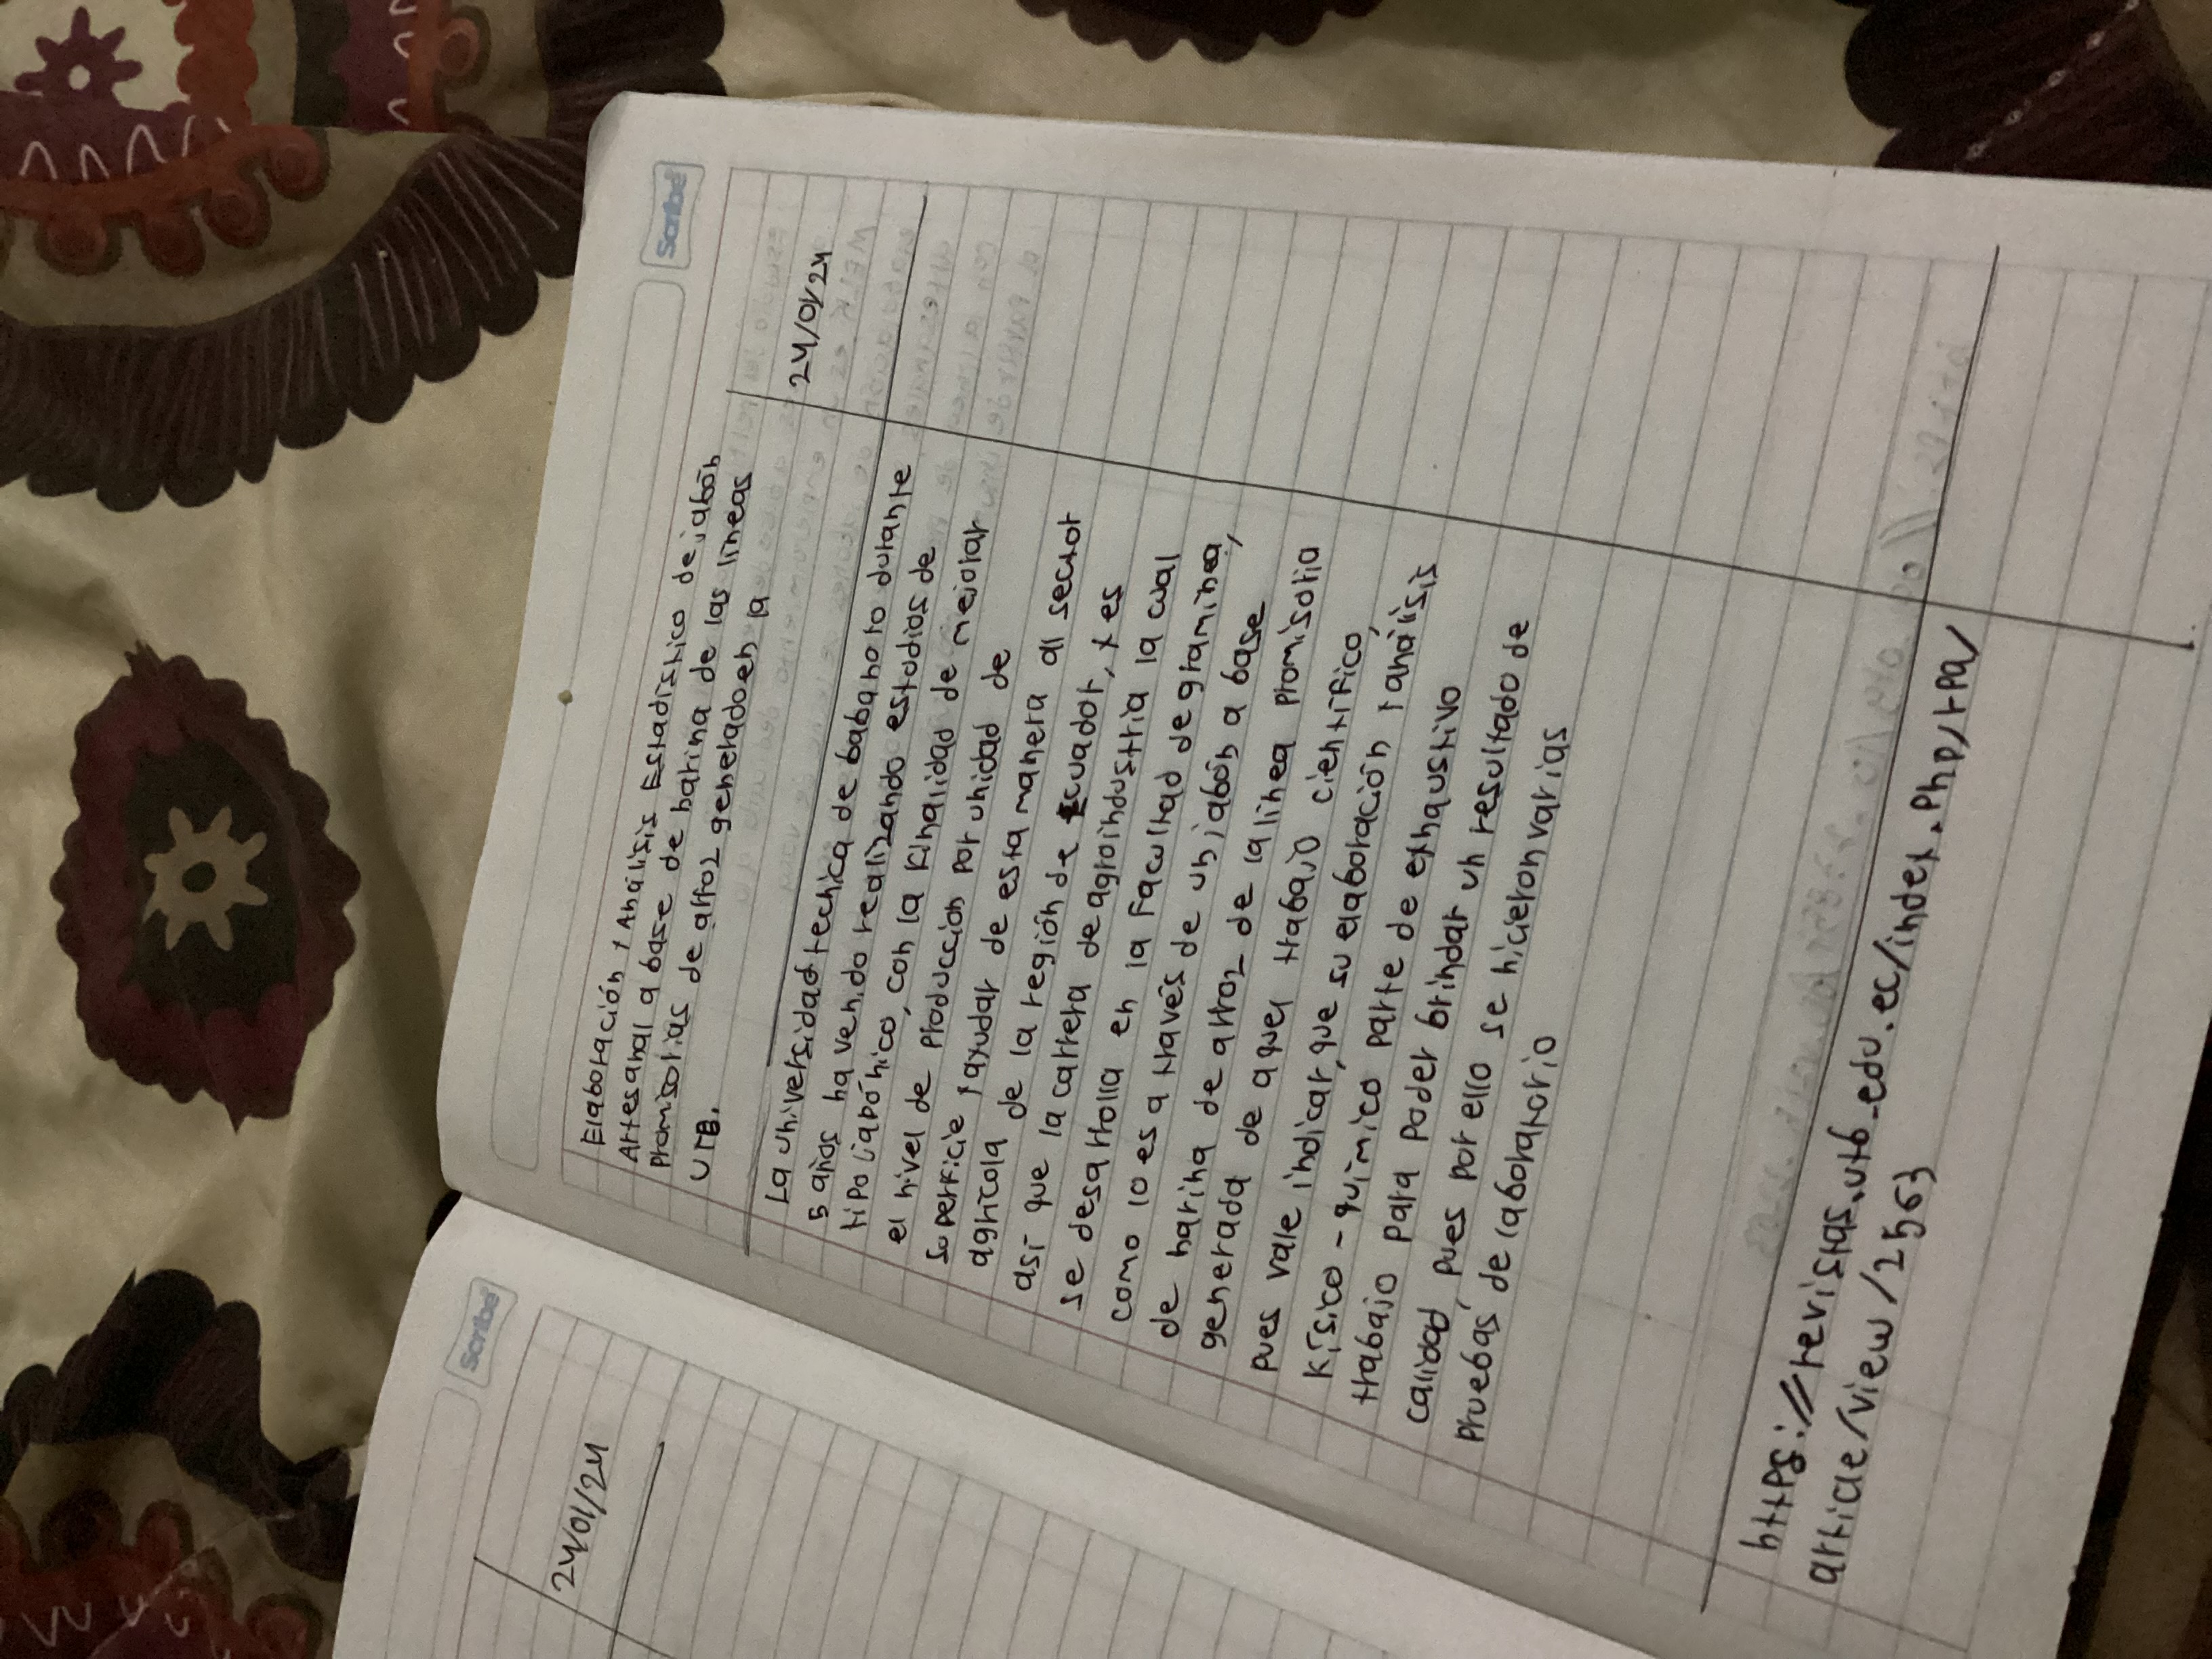 Scribe
24/01/24
Scribe
Elaboración y Análisis Estadístico de jabón
Artesanal a base de harina de las líneas
Promisorias de arroz generado en la
UTB.
24/01/24
La universidad technica de babahoto durante
5 años ha venido realizando estudios de
tipo japónico, con la finalidad de mejorar
el nivel de Producción por unidad de
superficie y ayudar de esta manera al sector
agricola de la región de Ecuador, y es
así que la carrera de agroindustria la cual
se desarrolla en la Facultad de graminea,
como lo es a través de un jabón a base
de harina de arroz de la línea Promisoria
generada de aquel trabajo científico,
pues vale indicar, que su elaboración y análisis
Físico - químico parte de exhaustivo
trabajo para poder brindar un resultado de
calidad, pues por ello se hicieron varias
Pruebas de laboratorio
https://revistas.utb.edu.ec/index.php/rpa/
article/view/2563